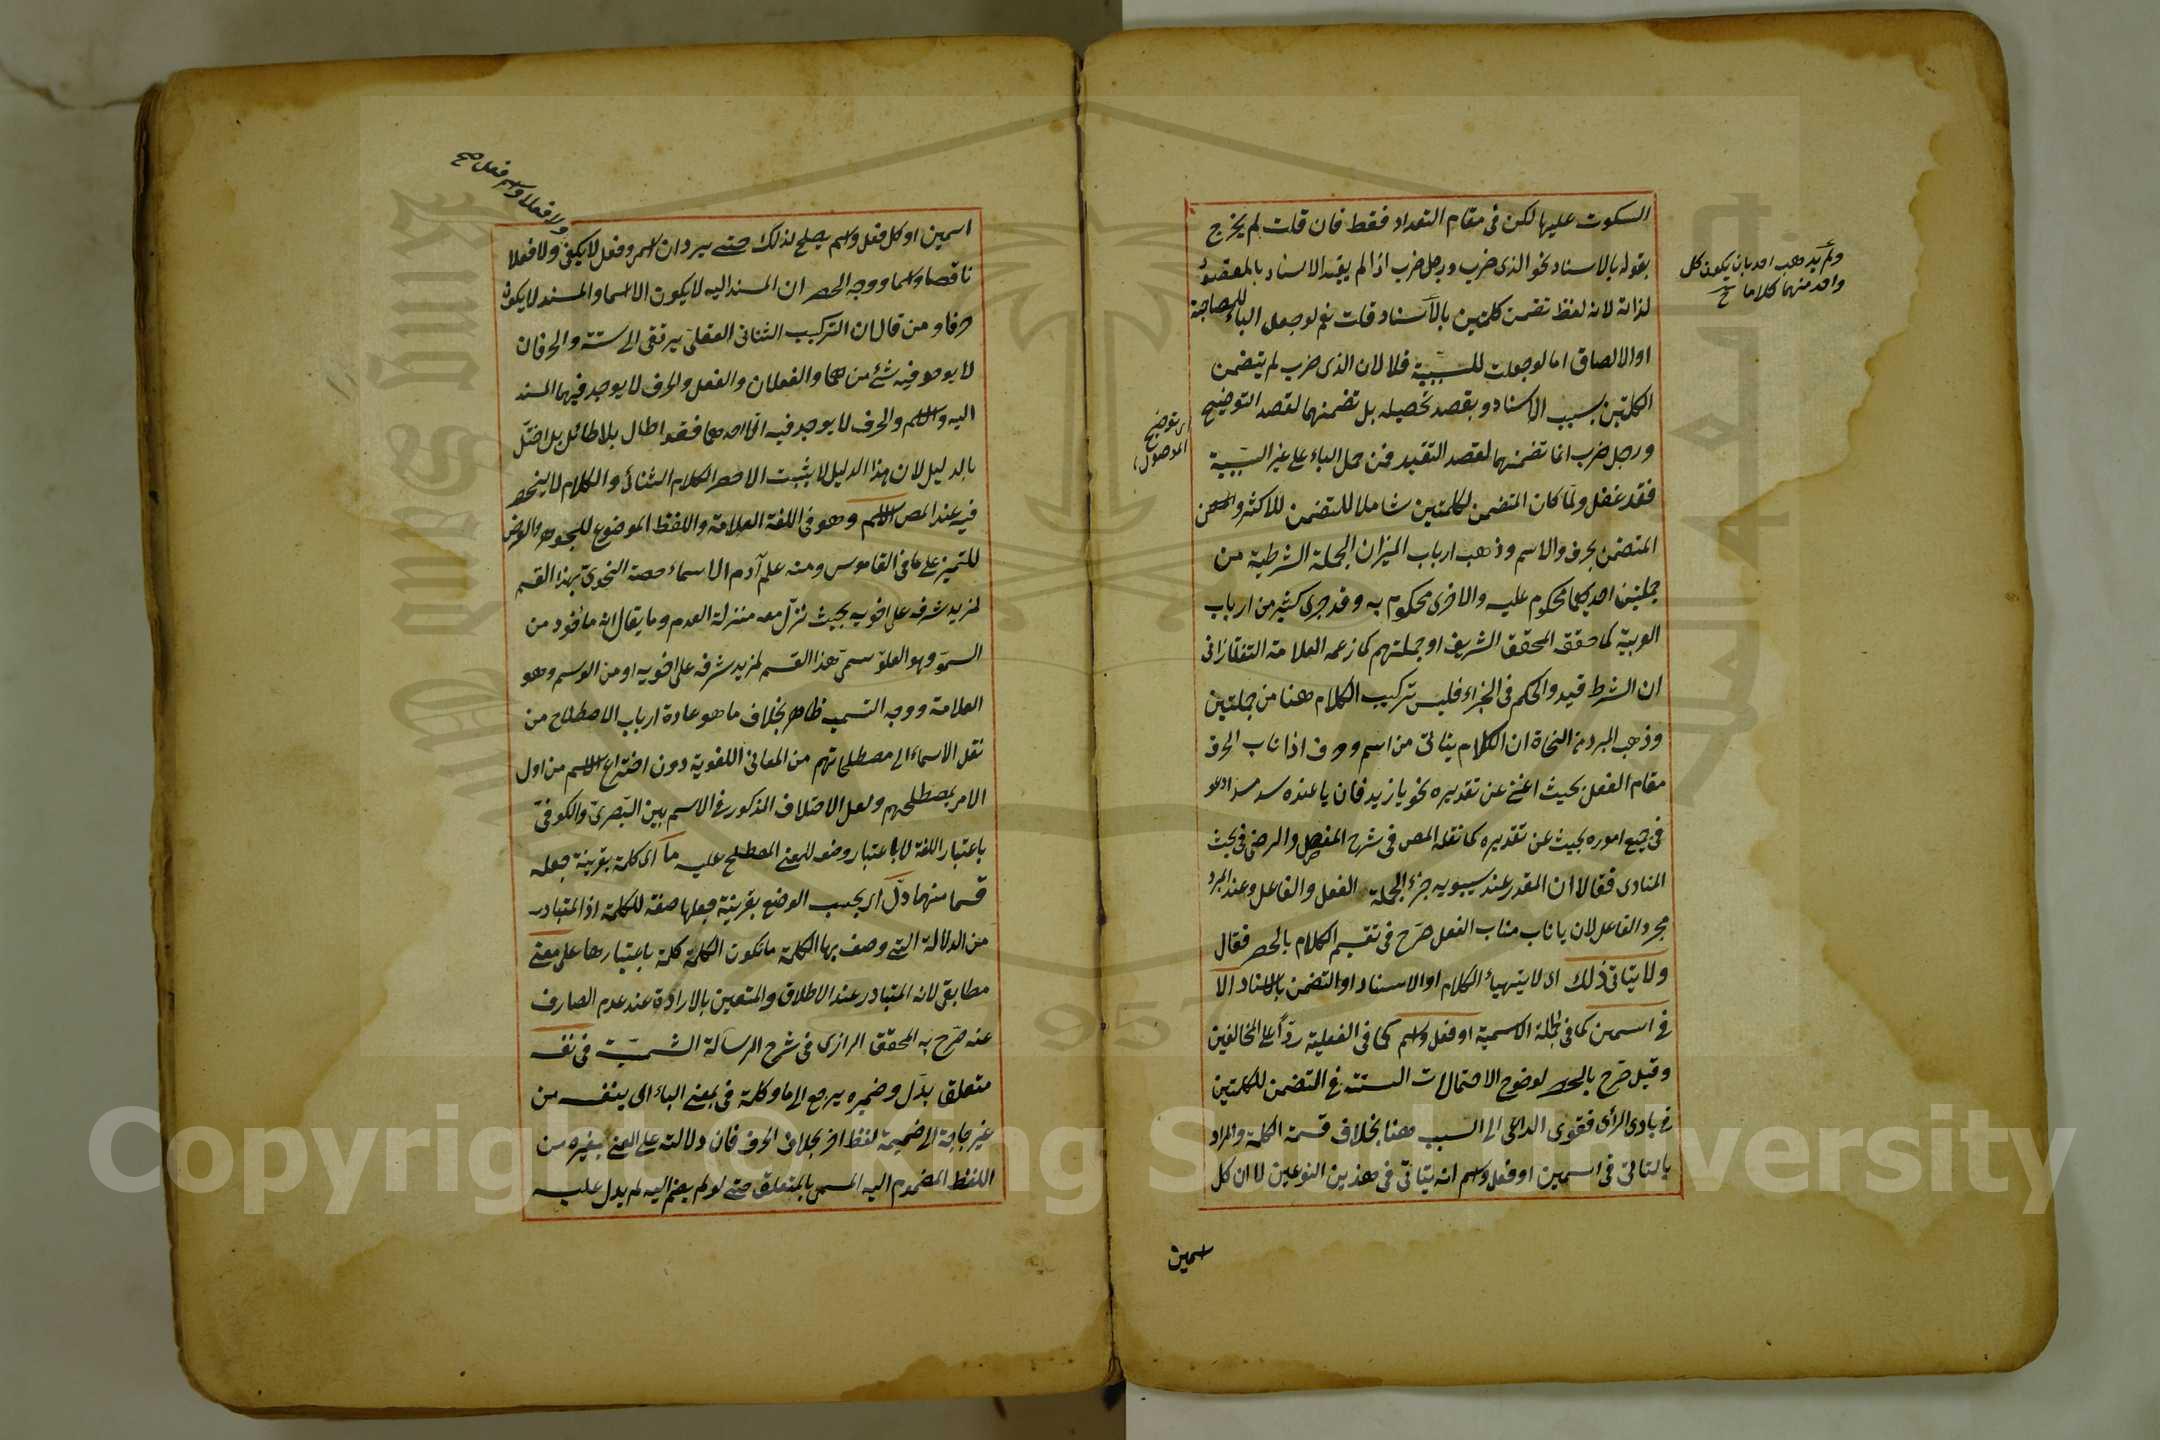 السكوت عليها لكن فى مقام التعداد فقط فان قلت لم يخرج
بقوله بالاسناد نحو الذى ضرب ورجل ضرب اذا لم يقيد الاسناد بالمقصود
لذاته لانه لفظ تضمن كلمتين بالاسناد قلت نعم لو جعل الباء للمصاحبة
او الالصاق اما لو جعلت للسببية فلا لان الذى ضرب لم يتضمن
الكلمتين بسبب الاسناد وبقصد تحصيله بل تضمنهما لقصد التوضيح
ورجل ضرب انما تضمنهما لقصد التقييد فمن حمل الباء على غير السببية
فقد غفل ولما كان المتضمن لكلمتين شاملا للمتضمن للاكثر والمتضمن
المتضمن بحرف والاسم وذهب ارباب الميزان الجملة الشرطية من
جملتين احديهما محكوم عليه والاخرى محكوم به وقد جرى كثير من ارباب
العربية كما حققه المحقق الشريف او جملتهم كما زعمه العلامة التفتازانى
ان الشرط قيد والحكم فى الجزاء فليس تركيب الكلام هنا من جملتين
وذهب المبرد من النحاة ان الكلام يتأتى من اسم وحرف اذا ناب الحرف
مقام الفعل بحيث اغنى عن تقديره نحو يا زيد فان يا عنده سد مسد ادعو
فى جميع اموره بحيث عن تقديره كما نقله المص فى شرح المفصل والرضى فى بحث
المنادى فقالا ان المقدر عند سيبويه جزء الجملة الفعل والفاعل وعند المبرد
مجرد الفاعل لان يا ناب مناب الفعل صرح فى تقسيم الكلام بالحصر فقال
ولا يتأتى ذلك اى لا يتهيأ الكلام او الاسناد او التضمن بالاسناد الا
فى اسمين كما فى الجملة الاسمية او فعل واسم كما فى الفعلية ردا على المخالفين
وقيل صرح بالحصر لوضوح الاحتمالات الستة فى المتضمن للكلمتين
فى بادى الرأى فقوى الداعى الى السبب ههنا بخلاف قسمة الكلمة والمراد
بالتأتى فى اسمين او فعل واسم انه يتأتى فى هذين النوعين لا ان كل
اسمين
ولم يذهب احد بان يكون كل
واحد منهما كلاما
اى توضيح
الموصول
اسمين او كل فعل واسم يصلح لذلك حتى يرد ان اسم وفعل لا يكفى ولا فعلا
ولا فعلا واسم فعل صح
ناقصا واسما ووجه الحصر ان المسند اليه لا يكون الا اسما والمسند لا يكون
حرفا ومن قال ان التركيب الثنائى العقلى يرتقى الى ستة والحرفان
لا يوجد فيه شئ منهما والفعلان والفعل والحرف لا يوجد فيهما المسند
اليه والاسم والحرف لا يوجد فيه الا احدهما فقد اطال بلا طائل بل اختل
بالدليل لان هذا الدليل لا يثبت الا حصر الكلام الثنائى والكلام لا ينحصر
فيه عند المص الاسم وهو فى اللغة العلامة واللفظ الموضوع للجوهر والعرض
للتمييز على ما فى القاموس ومنه علم آدم الاسماء خصه النحوى بهذا القسم
لمزيد شرفه على اخويه بحيث نزل معه منزلة العدم وما يقال انه مأخوذ من
السمو وهو العلو سمى هذا القسم لمزيد شرفه على اخويه او من الوسم وهو
العلامة ووجه التسمية ظاهر بخلاف ما هو عادة ارباب الاصطلاح من
نقل الاسماء الى مصطلحاتهم من المعانى اللغوية دون اختراع الاسم من اول
الامر لمصطلحهم ولعل الاختلاف المذكور فى الاسم بين البصرى والكوفى
باعتبار اللغة لا باعتبار وضعه للمعنى المصطلح عليه ما اى كلمة بقرينة جعله
قسما منهما دل اى بحسب الوضع بقرينة جعلها صفة للكلمة اذ المتبادر
من الدلالة التى وصف بها الكلمة ما تكون الكلمة كلمة باعتبارها على معنى
مطابقى لانه المتبادر عند الاطلاق والمتعين بالارادة عند عدم الصارف
عنه صرح به المحقق الرازى فى شرح الرسالة الشمسية فى نفسه
متعلق بدل وضميره يرجع الى ما وكلمة فى بمعنى الباء اى بنفسه من
غير حاجة الى ضميمة لفظ اخر بخلاف الحرف فان دلالته على المعنى بغيره من
اللفظ المضموم اليه المسمى بالمتعلق حتى لو لم يضم اليه لم يدل عليه
Copyright © King Saud University
King Saud University
1957